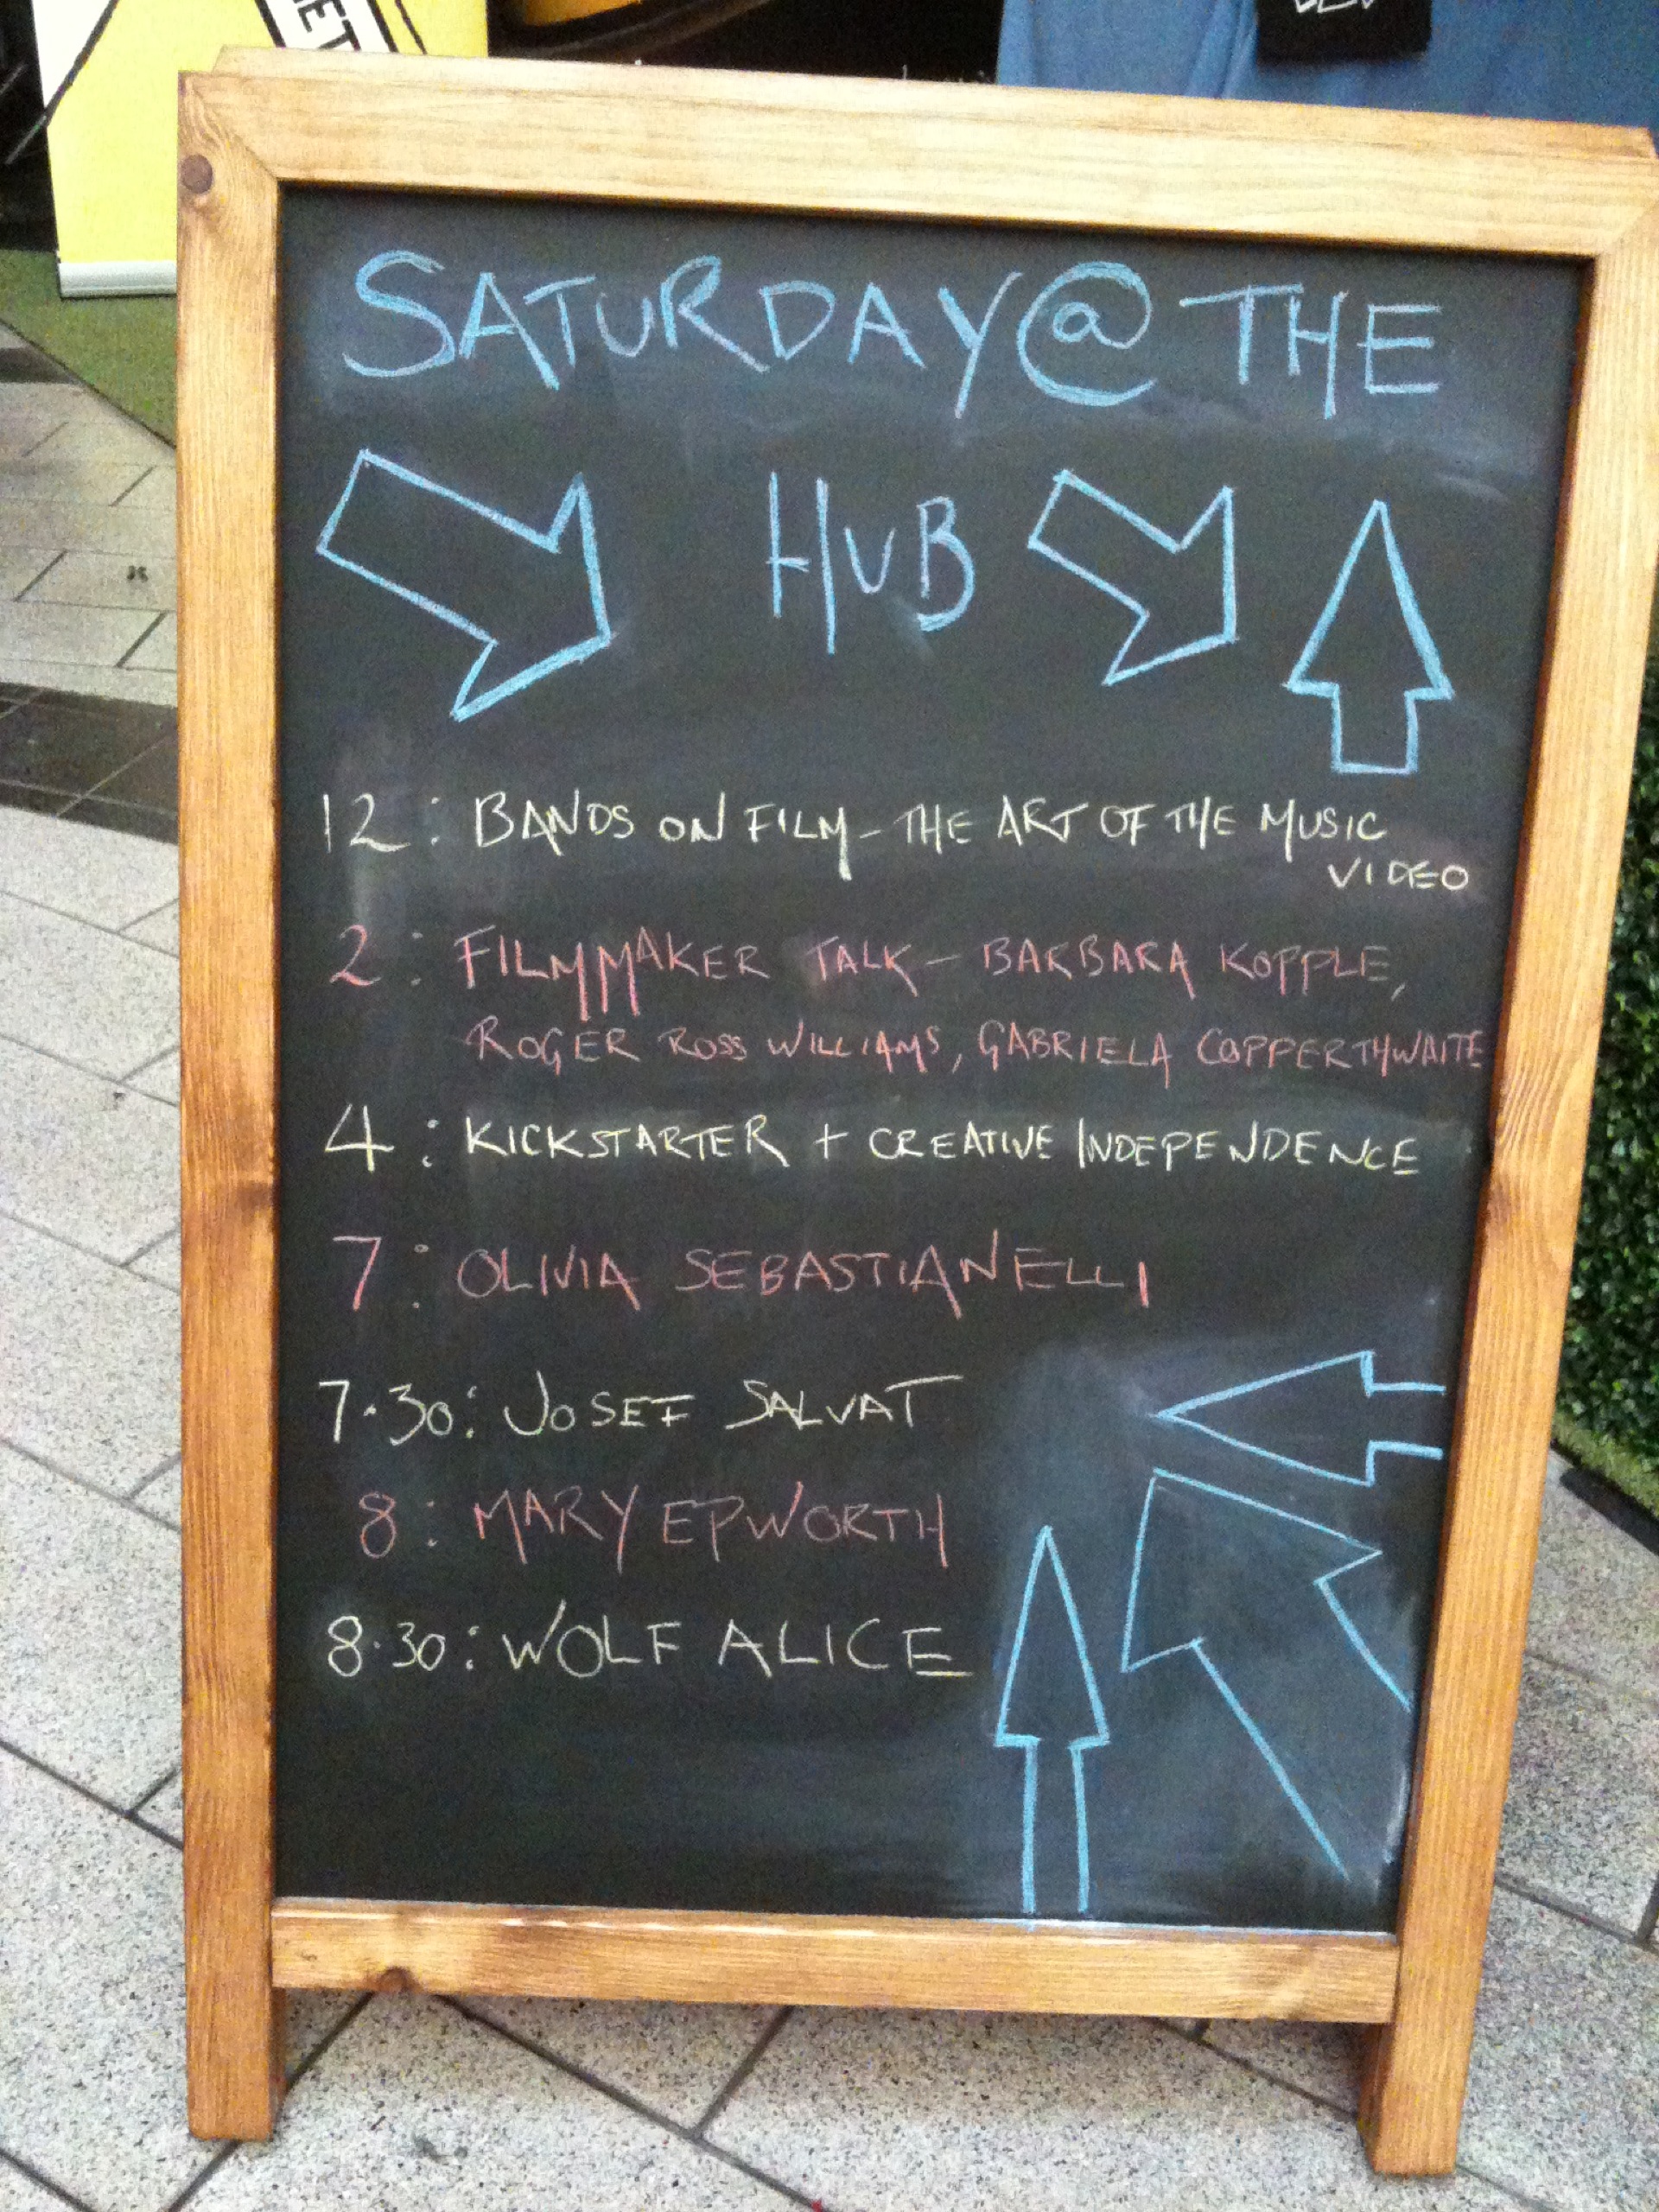 SATURDAY @ THE
HUB
12: BANDS ON FILM - THE ART OF THE MUSIC
VIDEO
2: FILMMAKER TALK - BARBARA KOPPLE,
ROGER ROSS WILLIAMS, GABRIELA COPPERTHWAITE
4: KICKSTARTER + CREATIVE INDEPENDENCE
7: OLIVIA SEBASTIANELLI
7.30: JOSEF SALVAT
8: MARY EPWORTH
8.30: WOLF ALICE